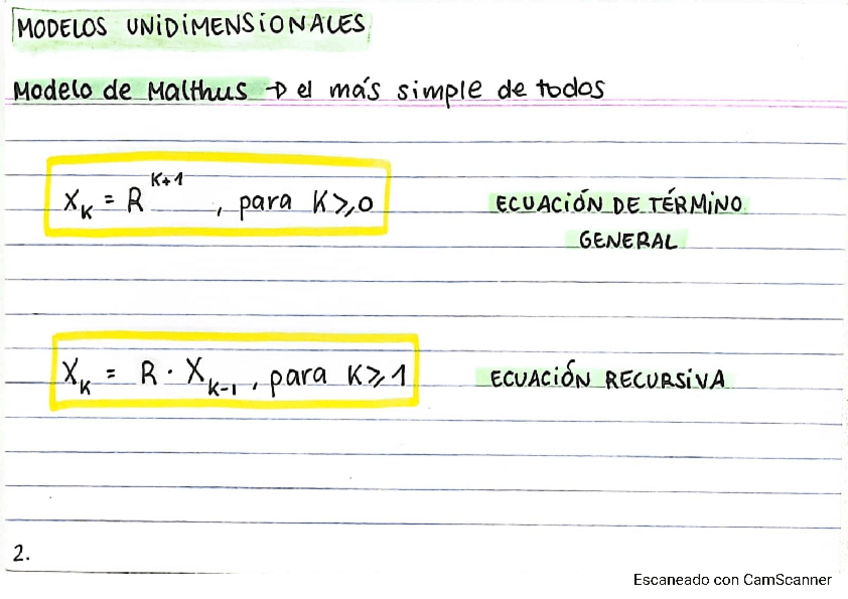 MODELOS UNIDIMENSIONALES
Modelo de Malthus → el más simple de todos
X_K = R^{K+1} , para K ≥ 0
ECUACIÓN DE TÉRMINO
GENERAL
X_K = R · X_{K-1} , para K ≥ 1
ECUACIÓN RECURSIVA
2.
Escaneado con CamScanner